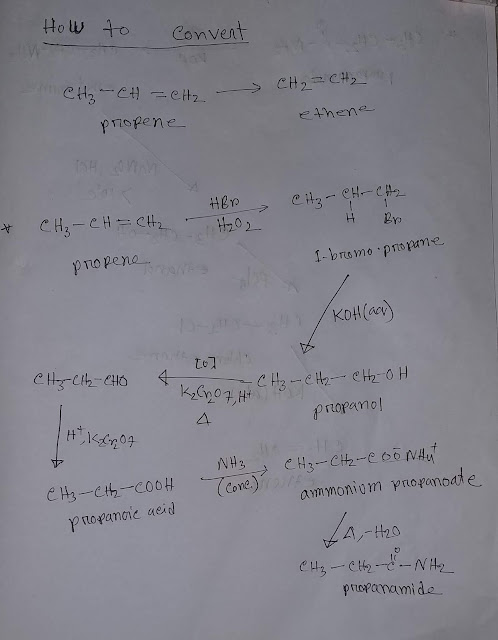 How to convert
CH3-CH=CH2 ⟶ CH2=CH2
propene
ethene
* CH3-CH=CH2 HBr H2O2 ⟶ CH3-CH-CH2
H Br
propene
1-bromo-propane
KOH(aq)
CH3-CH2-CHO ⟵ [O] K2Cr2O7, H+ Δ CH3-CH2-CH2-OH
propanol
H+, K2Cr2O7
CH3-CH2-COOH NH3 (conc.) ⟶ CH3-CH2-COO⁻NH4+
propanoic acid
ammonium propanoate
Δ, -H2O
O
CH3-CH2-C-NH2
propanamide